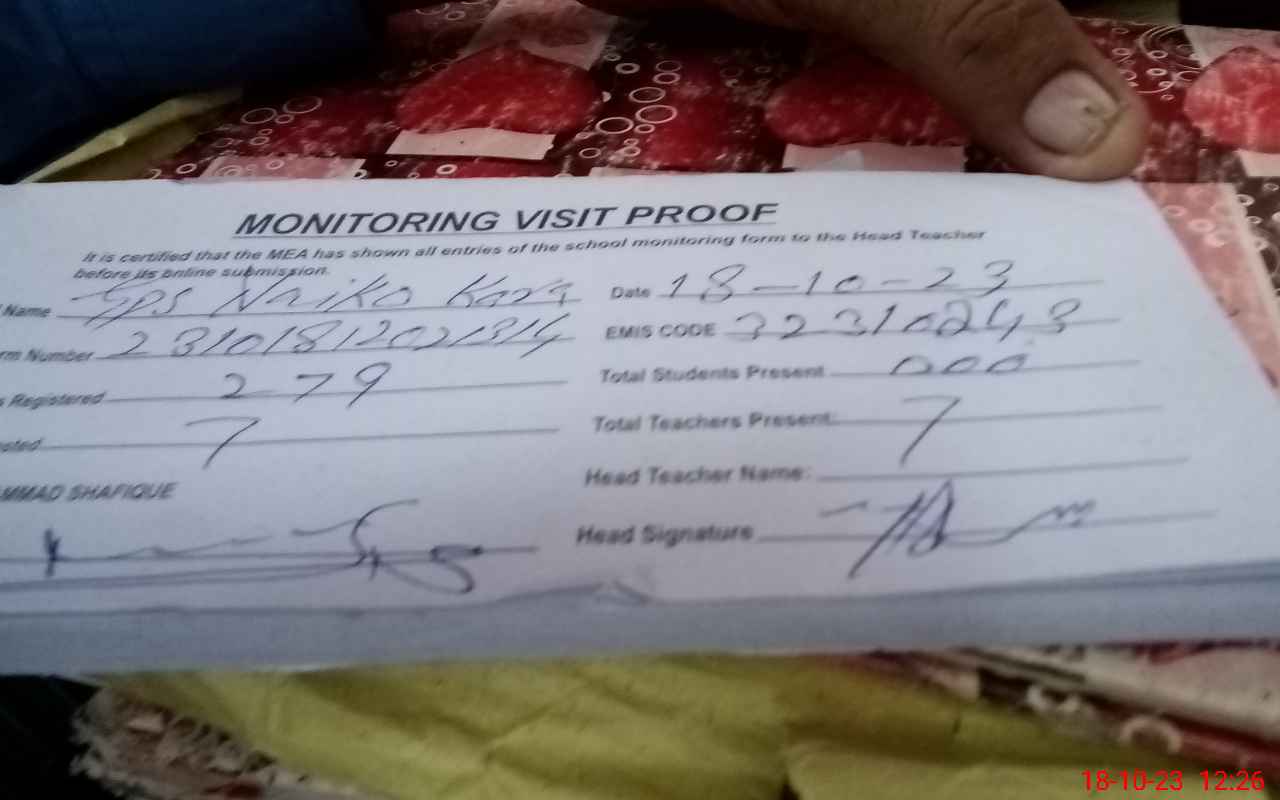 MONITORING VISIT PROOF
It is certified that the MEA has shown all entries of the school monitoring form to the Head Teacher
before its online submission.
Name GPS Naiko Kara Date 18-10-23
rm Number EMIS CODE 32310243
s Registered 279 Total Students Present 000
7 Total Teachers Present: 7
Head Teacher Name:
MMAD SHAFIQUE
Head Signature
18-10-23 12:26